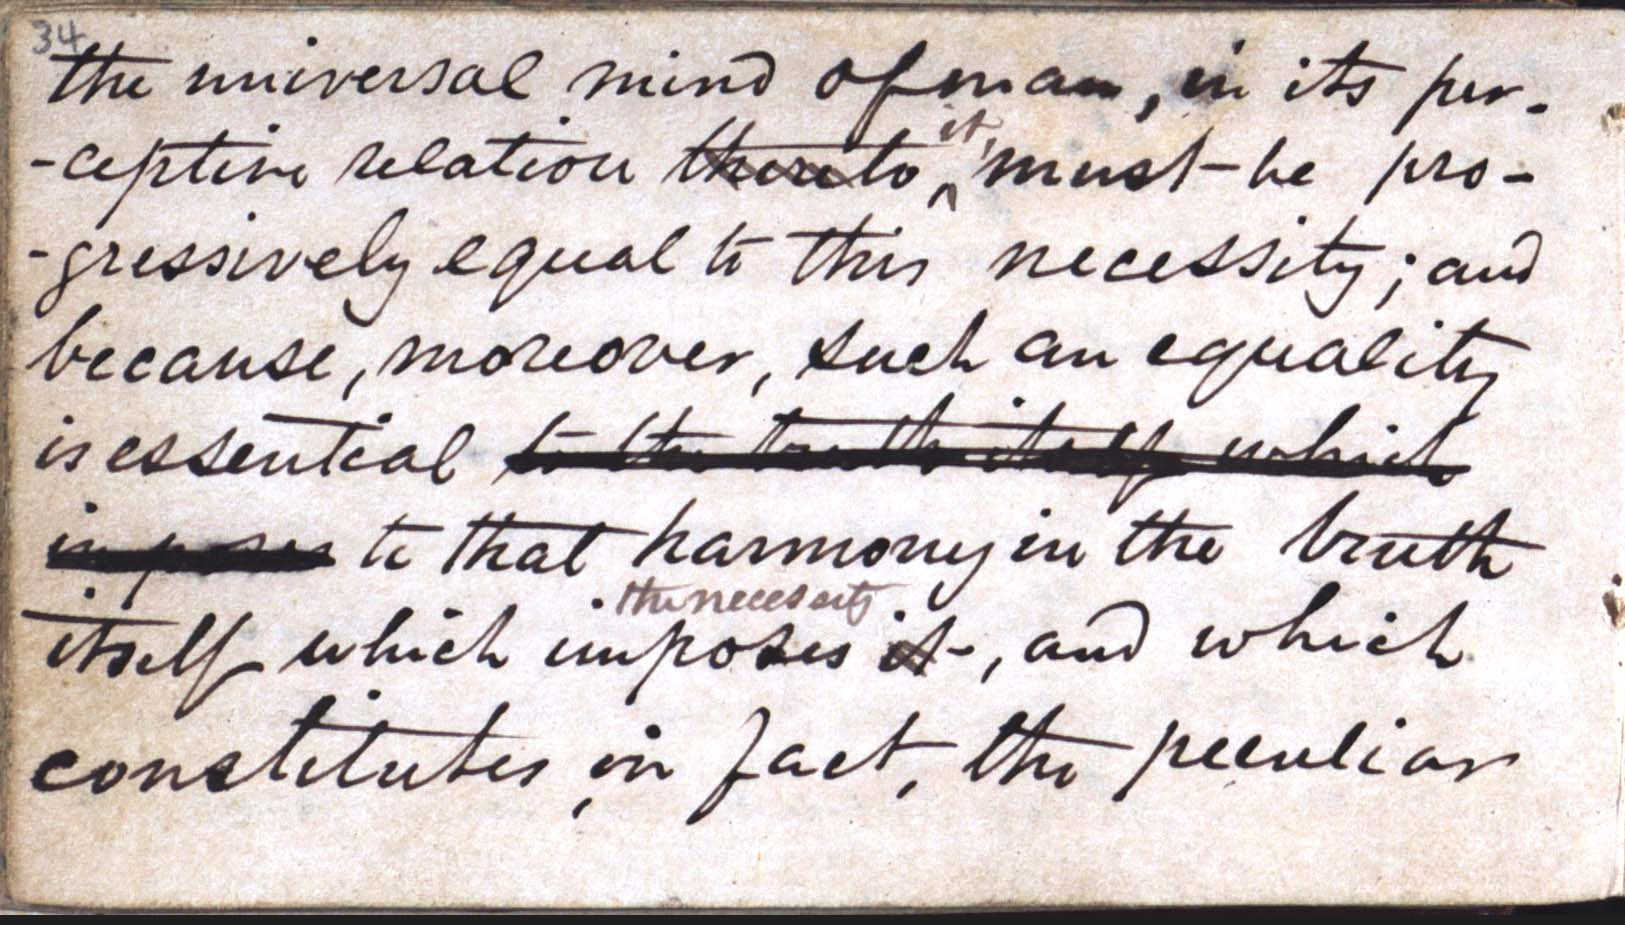 34
the universal mind of man, in its per-
-ceptive relation thereto it, must be pro-
-gressively equal to this necessity; and
because, moreover, such an equality
is essential to the truth itself which
imposes to that harmony in the truth
the necessity
itself which imposes it, and which
constitutes, in fact, the peculiar